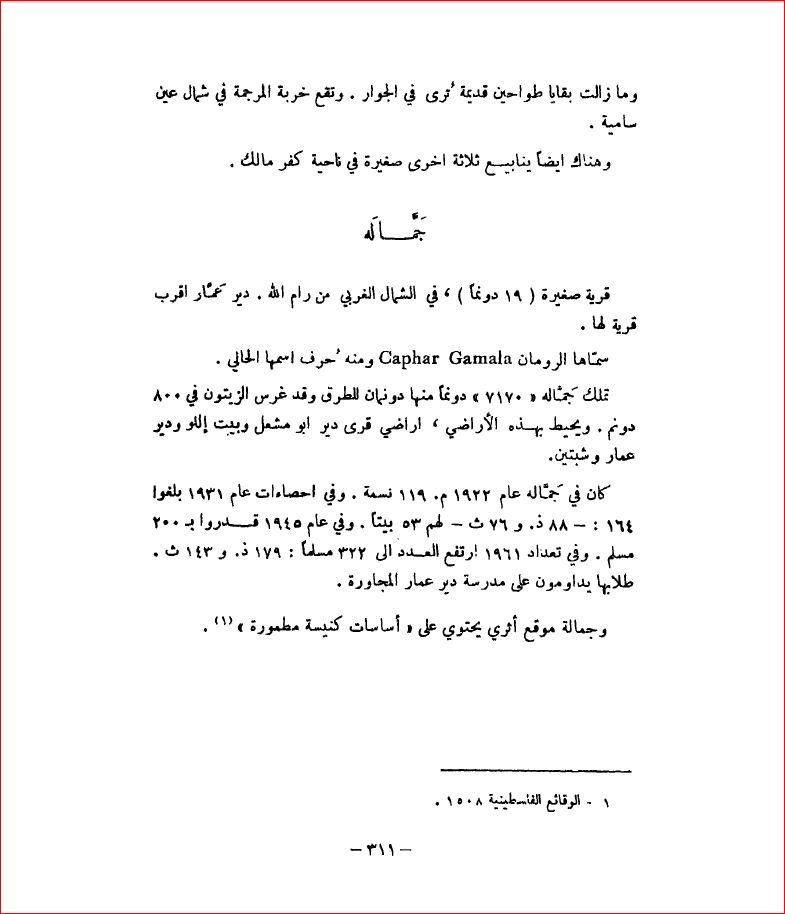 وما زالت بقايا طواحين قديمة تُرى في الجوار . وتقع خربة المرجمة في شمال عين
سامية .
وهناك ايضاً ينابيع ثلاثة اخرى صغيرة في ناحية كفر مالك .
جَمَّاله
قرية صغيرة ( ١٩ دونماً ) ، في الشمال الغربي من رام الله . دير عَمّار اقرب
قرية لها .
سمّاها الرومان Caphar Gamala ومنه حُرف اسمها الحالي .
تملك جَمّاله « ٧١٧٠ » دونماً منها دونمان للطرق وقد غرس الزيتون في ٨٠٠
دونم . ويحيط بهذه الأراضي ، اراضي قرى دير ابو مشعل وبيت إللو ودير
عمار وشبتين.
كان في جَمّاله عام ١٩٢٢ م. ١١٩ نسمة . وفي احصاءات عام ١٩٣١ بلغوا
١٦٤ : – ٨٨ ذ. و ٧٦ ث – لهم ٥٣ بيتاً . وفي عام ١٩٤٥ قدروا بـ ٢٠٠
مسلم . وفي تعداد ١٩٦١ ارتفع العدد الى ٣٢٢ مسلماً : ١٧٩ ذ. و ١٤٣ ث .
طلابها يداومون على مدرسة دير عمار المجاورة .
وجمالة موقع أثري يحتوي على « أساسات كنيسة مطمورة » (١) .
١ - الوقائع الفلسطينية ١٥٠٨ .
– ٣١١ –